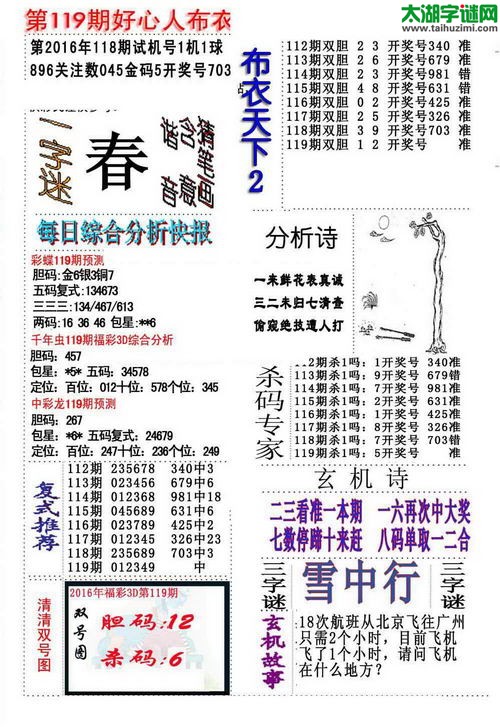 太湖字谜网
www.taihuzimi.com
第119期好心人布衣
第2016年118期试机号1机1球
896关注数045金码5开奖号703
一字谜
春
猜笔画
含意
谐音
布衣天下2
112期双胆 2 3 开奖号340 准
113期双胆 2 4 开奖号679 错
114期双胆 2 3 开奖号981 错
115期双胆 4 8 开奖号631 错
116期双胆 0 2 开奖号425 准
117期双胆 2 5 开奖号326 准
118期双胆 3 9 开奖号703 准
119期双胆 1 2 开奖号 准
每日综合分析快报
彩蝶119期预测
胆码:金6银3铜7
五码复式:134673
三三三:134/467/613
两码:16 36 46 包星:**6
千年虫119期福彩3D综合分析
胆码:457
包星:*5* 五码:34578
定位:百位:012十位:578个位:345
中彩龙119期预测
胆码:267
包星:*6* 五码复式:24679
定位:百位:247十位:236个位:249
分析诗
一来鲜花表真诚
三二未归七清查
偷窥绝技遭人打
杀码专家
112期杀1吗:1开奖号 340准
113期杀1吗:9开奖号 679错
114期杀1吗:7开奖号 981准
115期杀1吗:9开奖号 631准
116期杀1吗:1开奖号 425准
117期杀1吗:8开奖号 326准
118期杀1吗:7开奖号 703错
119期杀1吗:5开奖号 准
复式推荐
112期 235678 340中3
113期 023456 679中6
114期 012368 981中18
115期 045689 631中6
116期 023789 425中2
117期 012345 326中23
118期 235689 703中3
119期 012349 中
玄机诗
二三看准一本期 一六再次中大奖
七数停蹄十来赶 八码单取一二合
三字谜
雪中行
三字谜
清清双号图
2016年福彩3D第119期
双号图
胆码:12
杀码:6
玄机故事
18次航班从北京飞往广州
只需2个小时,目前飞机
飞了1个小时,请问飞机
在什么地方?